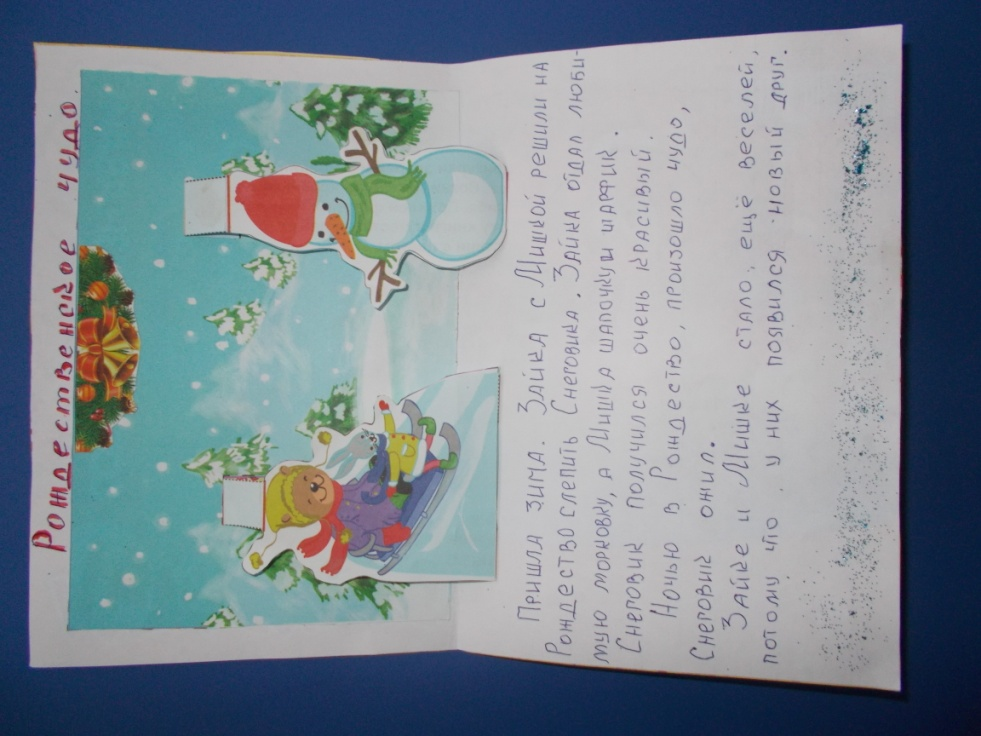 Рождественское чудо
Пришла зима. Зайка с Мишкой решили на
Рождество слепить Снеговика. Зайка отдал люби-
мую морковку, а Мишка шапочку и шарфик.
Снеговик получился очень красивый.
Ночью в Рождество, произошло чудо,
Снеговик ожил.
Зайке и Мишке стало ещё веселей,
потому что у них появился новый друг.